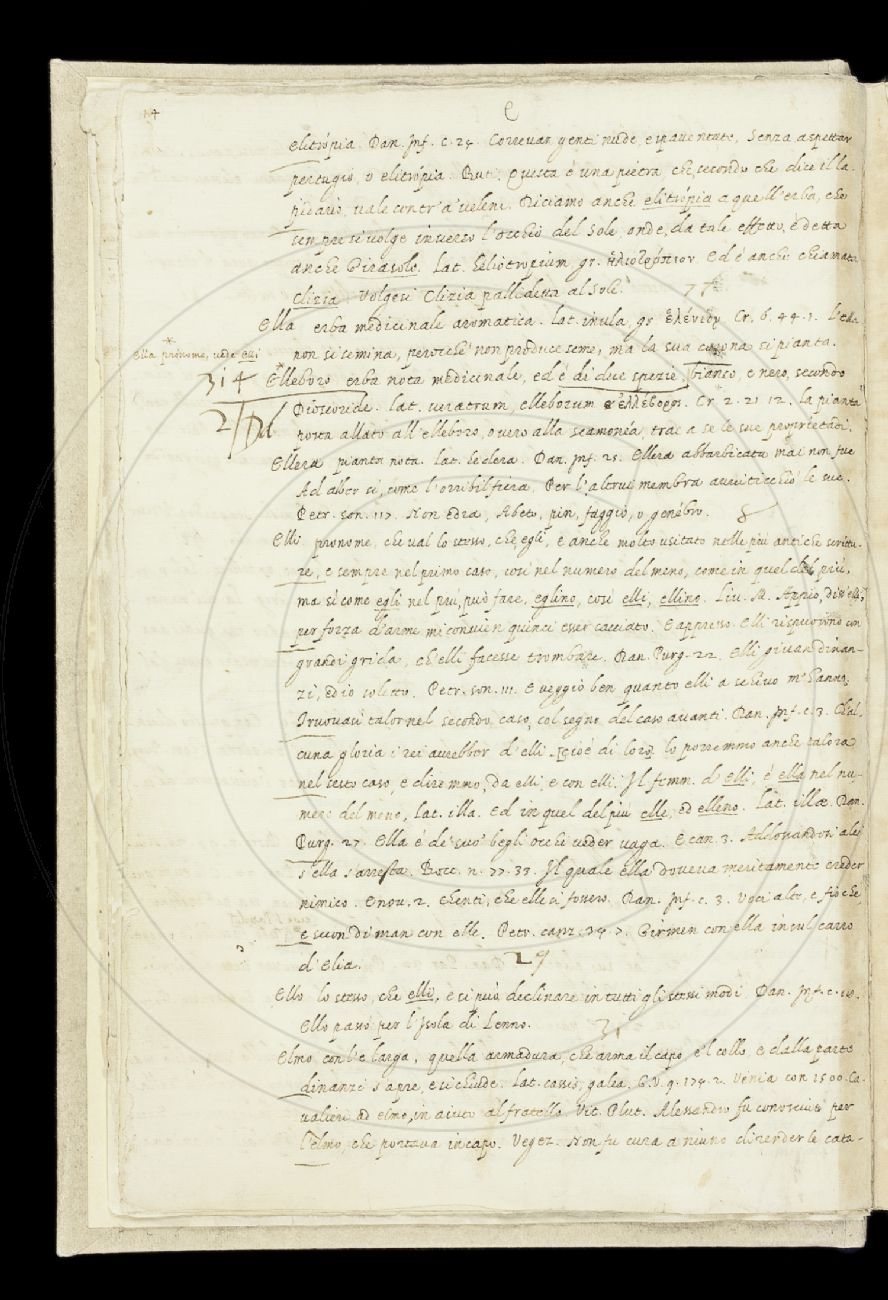 14
E
elitropia. Dan. Inf. c. 24. Correvan genti nude, e spaventate, Senza aspettar
pertugio, o elitropia. But. Questa è una pietra, che, secondo che dice il la-
pidario, vale contr'a veleni. Diciamo anche elitropia a quell'erba, che
sempre si volge inverso l'occhio del Sole, onde, da tale effetto, è detta
anche Girasole. Lat. heliotropium gr. ἡλιοτρόπιον Ed è anche chiamata
Clizia. Volgesi Clizia pallidetta al Sole. 77
Ella erba medicinale aromatica. Lat. inula, gr ἑλένιον Cr. 6. 44. 1. L'ella
non si semina, perocche' non produce seme, ma la sua corona si pianta.
* Ella pronome, vedi egi
314 Elleboro erba nota medicinale, ed è di due spezie, bianco, e nero, secondo
Dioscoride. Lat. veratrum, elleborum ἑλλέβορος. Cr. 2. 21. 12. La pianta
2 posta allato all'elleboro, overo alla scamonea, trae a se le sue proprietadi.
Ellera pianta nota. Lat. hedera. Dan. Inf. 25. Ellera abbarbicata mai non fue
Ad alber si, come l'orribil fiera, Per l'altrui membra avviticchiò le sue.
Petr. son. 117. Non edra, Abeto, pin, faggio, o genebro. 8
Elli pronome, che val lo stesso, che, egli, è anche molto usitato nelle più antiche scrittu-
re, e sempre nel primo caso, così nel numero del meno, come in quel del più,
ma si come egli nel più, può fare, eglino, così elli, ellino. Liv. M. Appio, diss'elli,
per forza d'arme mi convien quinci esser cacciato. E appresso. Elli rispuosono con
grandi grida, ch'elli facesse trombare. Dan. Purg. 22. Elli givan dinan-
zi, ed io soletto. Petr. son. 111. E veggio ben quanto elli a schivo m'hanno.
Truovasi talor nel secondo caso, col segno del caso avanti. Dan. Inf. c. 3. Ch'al-
cuna gloria i rei avrebber d'elli, cioè di loro lo porremmo anche talora
nel sesto caso, e diremmo, da elli, e con elli. Il femm. d'elli, è ella nel nu-
mero del meno, Lat. illa. Ed in quel del più elle, ed elleno. Lat. illæ. Dan.
Purg. 27. Ella è de' suo' begli occhi veder vaga. E can. 3. Addossandosi a lei
s'ella s'arresta. Bocc. n. 77. 33. Il quale ella doveva meritamente creder
nimico. E nov. 2. chenti, che elle si fossero. Dan. Inf. c. 3. Voci alte, e fioche,
e suon di man con elle. Petr. canz. 34. 7. Gir men con ella in sul carro
d'Elia. 29
Ello lo stesso, che elli, e si può declinare in tutti gli stessi modi. Dan. Inf. c. 18.
Ello passò per l'Isola di Lenno. 31
Elmo con l'e larga, quella armadura, che arma il capo, e'l collo, e dalla parte
dinanzi s'apre, e si chiude. Lat. cassis, galea, G.V. 9. 174. 2. Venia con 1500. Ca-
valieri ad elmo, in aiuto al fratello. Vit. Plut. Alessandro fu conosciuto per
l'elmo, che portava in capo. Vegez. Non fu cura a niuno di render le cata-